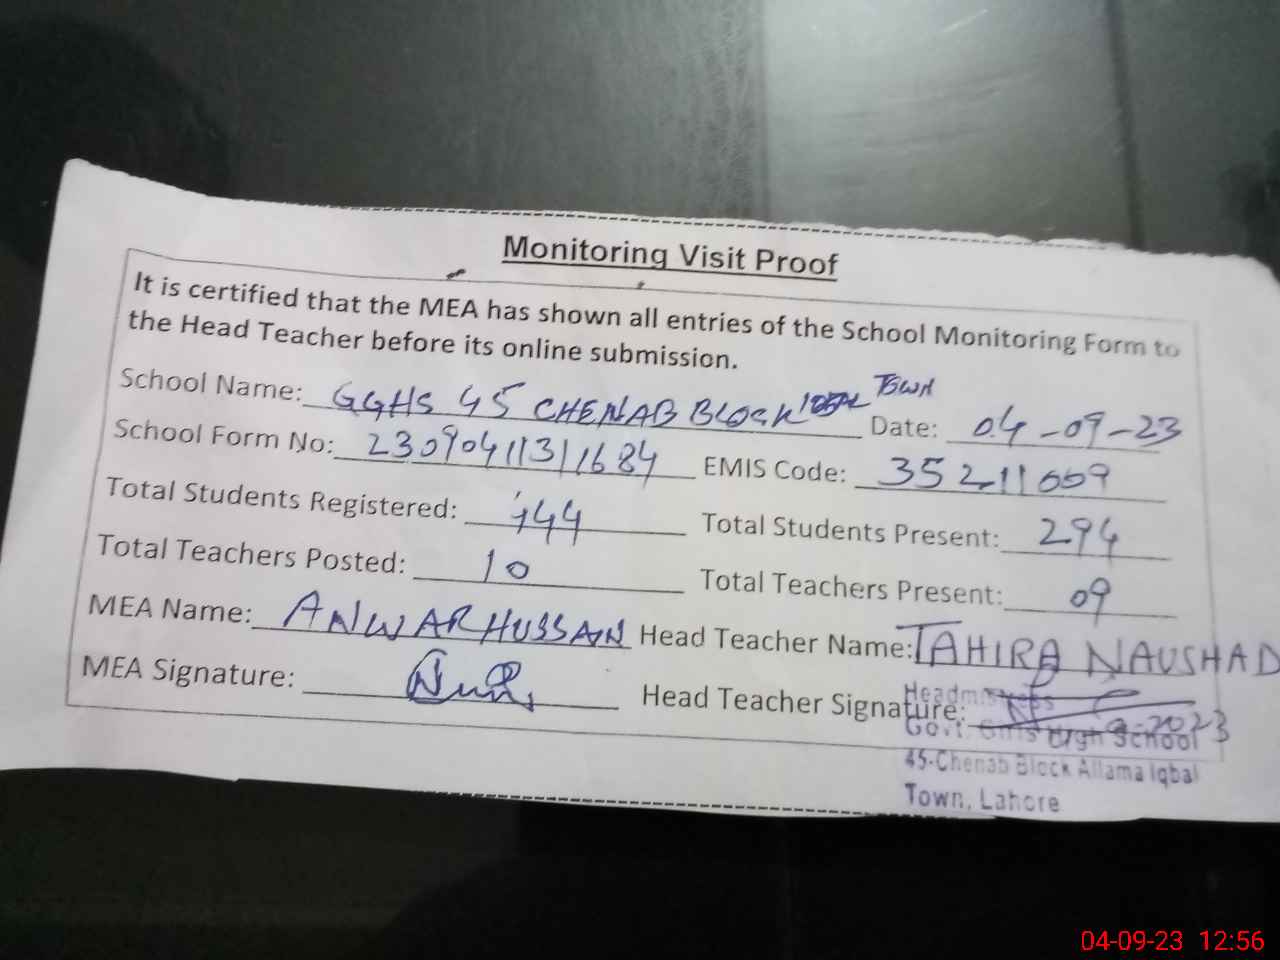 Monitoring Visit Proof
It is certified that the MEA has shown all entries of the School Monitoring Form to
the Head Teacher before its online submission.
School Name: GGHS 45 CHENAB BLOCK TOWN Date: 04-09-23
School Form No: 2309041131684 EMIS Code: 35211009
Total Students Registered: 444 Total Students Present: 294
Total Teachers Posted: 10 Total Teachers Present: 09
MEA Name: ANWAR HUSSAIN Head Teacher Name: TAHIRA NAUSHAD
MEA Signature: Head Teacher Signature:
Headmistress
Govt. Girls High School
45-Chenab Block Allama Iqbal
Town, Lahore
04-09-23 12:56